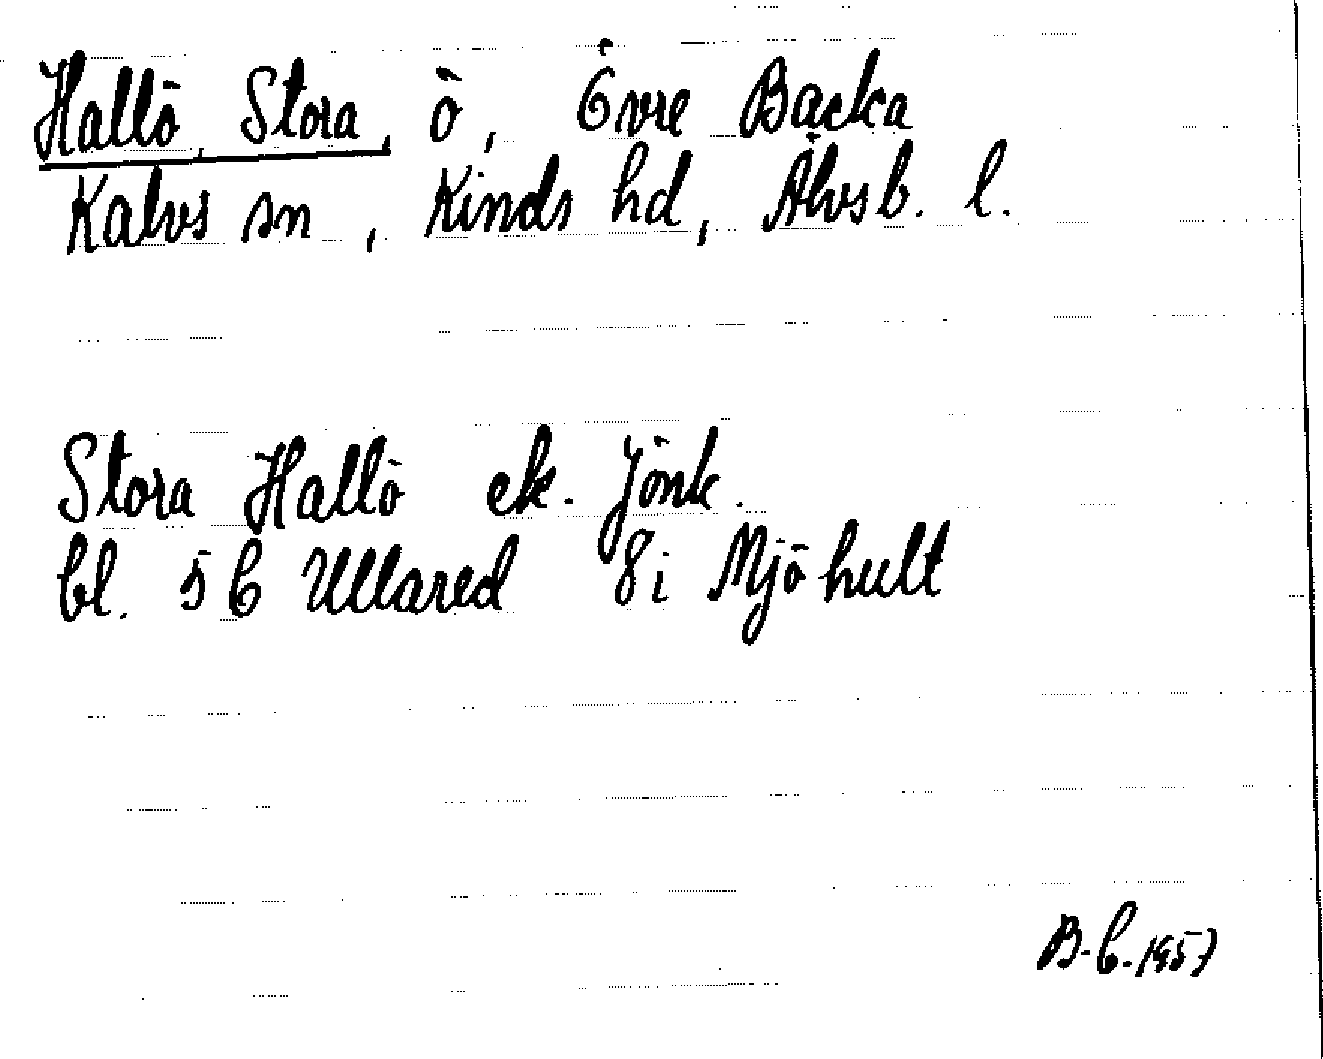 Hallö, Stora, ö, Övre Backa
Kalvs sn, Kinds hd, Älvsb. l.
Stora Hallö ek. Jönk.
bl. 5 C Ullared 8i Mjöhult
B.C. 1957